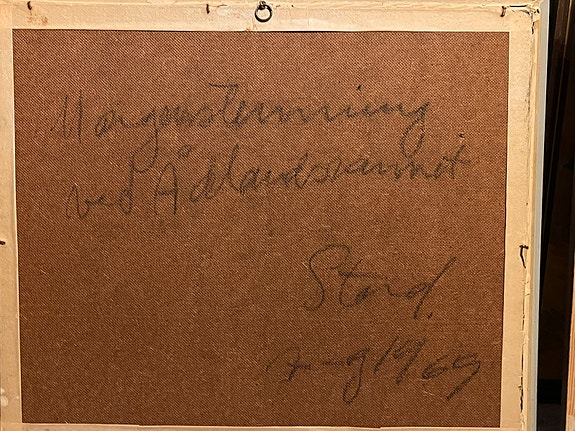 Morgenstemning
ved Ådlandsvannet
Stord.
7-8 1969